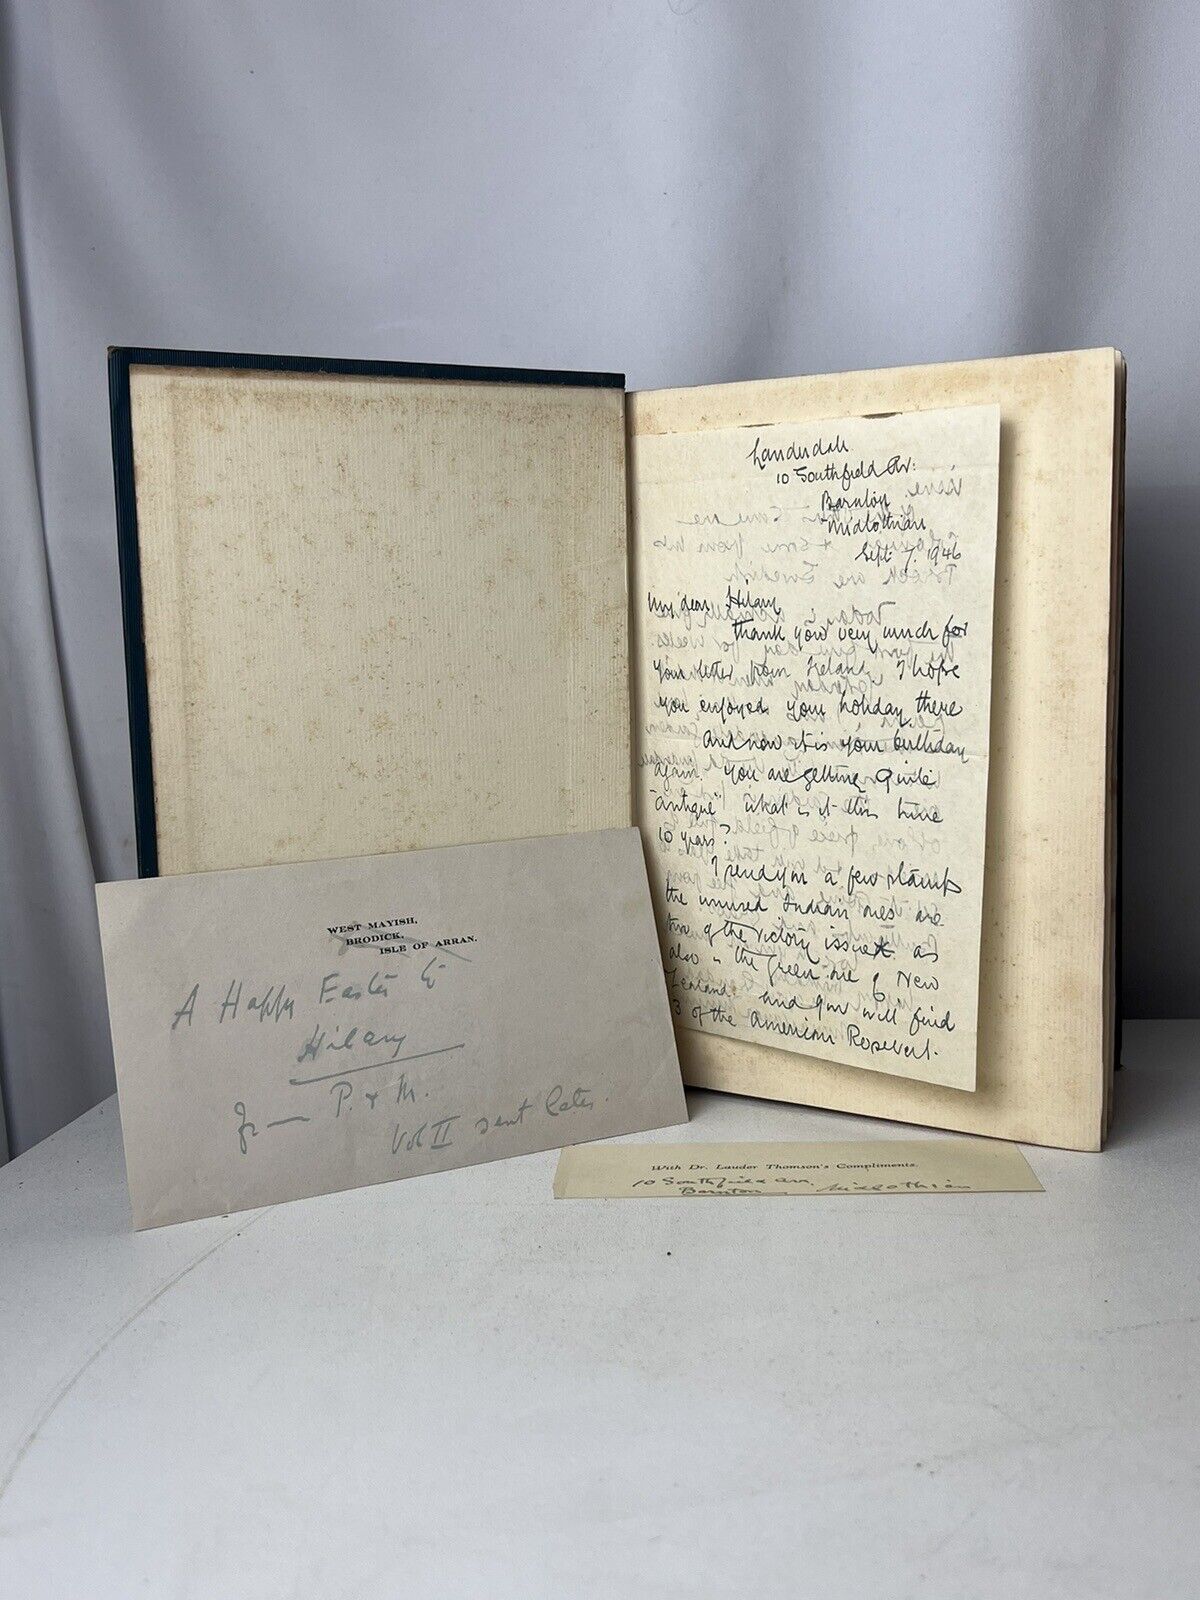 Lauderdale
10 Southfield Av:
Barnton
Midlothian
Sept: 7. 1946
My dear Hilary
Thank you very much for
your letter from Ireland. I hope
you enjoyed your holiday there
And now it is your birthday
again. You are getting quite
"antique" what is it this time
10 years?
I send you a few stamps
the unused Indian ones are
two of the victory issue as
also is the green one of New
Zealand. And you will find
3 of the American Rosevert.
WEST MAYISH,
BRODICK,
ISLE OF ARRAN.
A Happy Easter to
Hilary
from P. & M.
Vol II sent later.
With Dr. Lauder Thomson's Compliments.
10 Southfield Av.
Barnton Midlothian